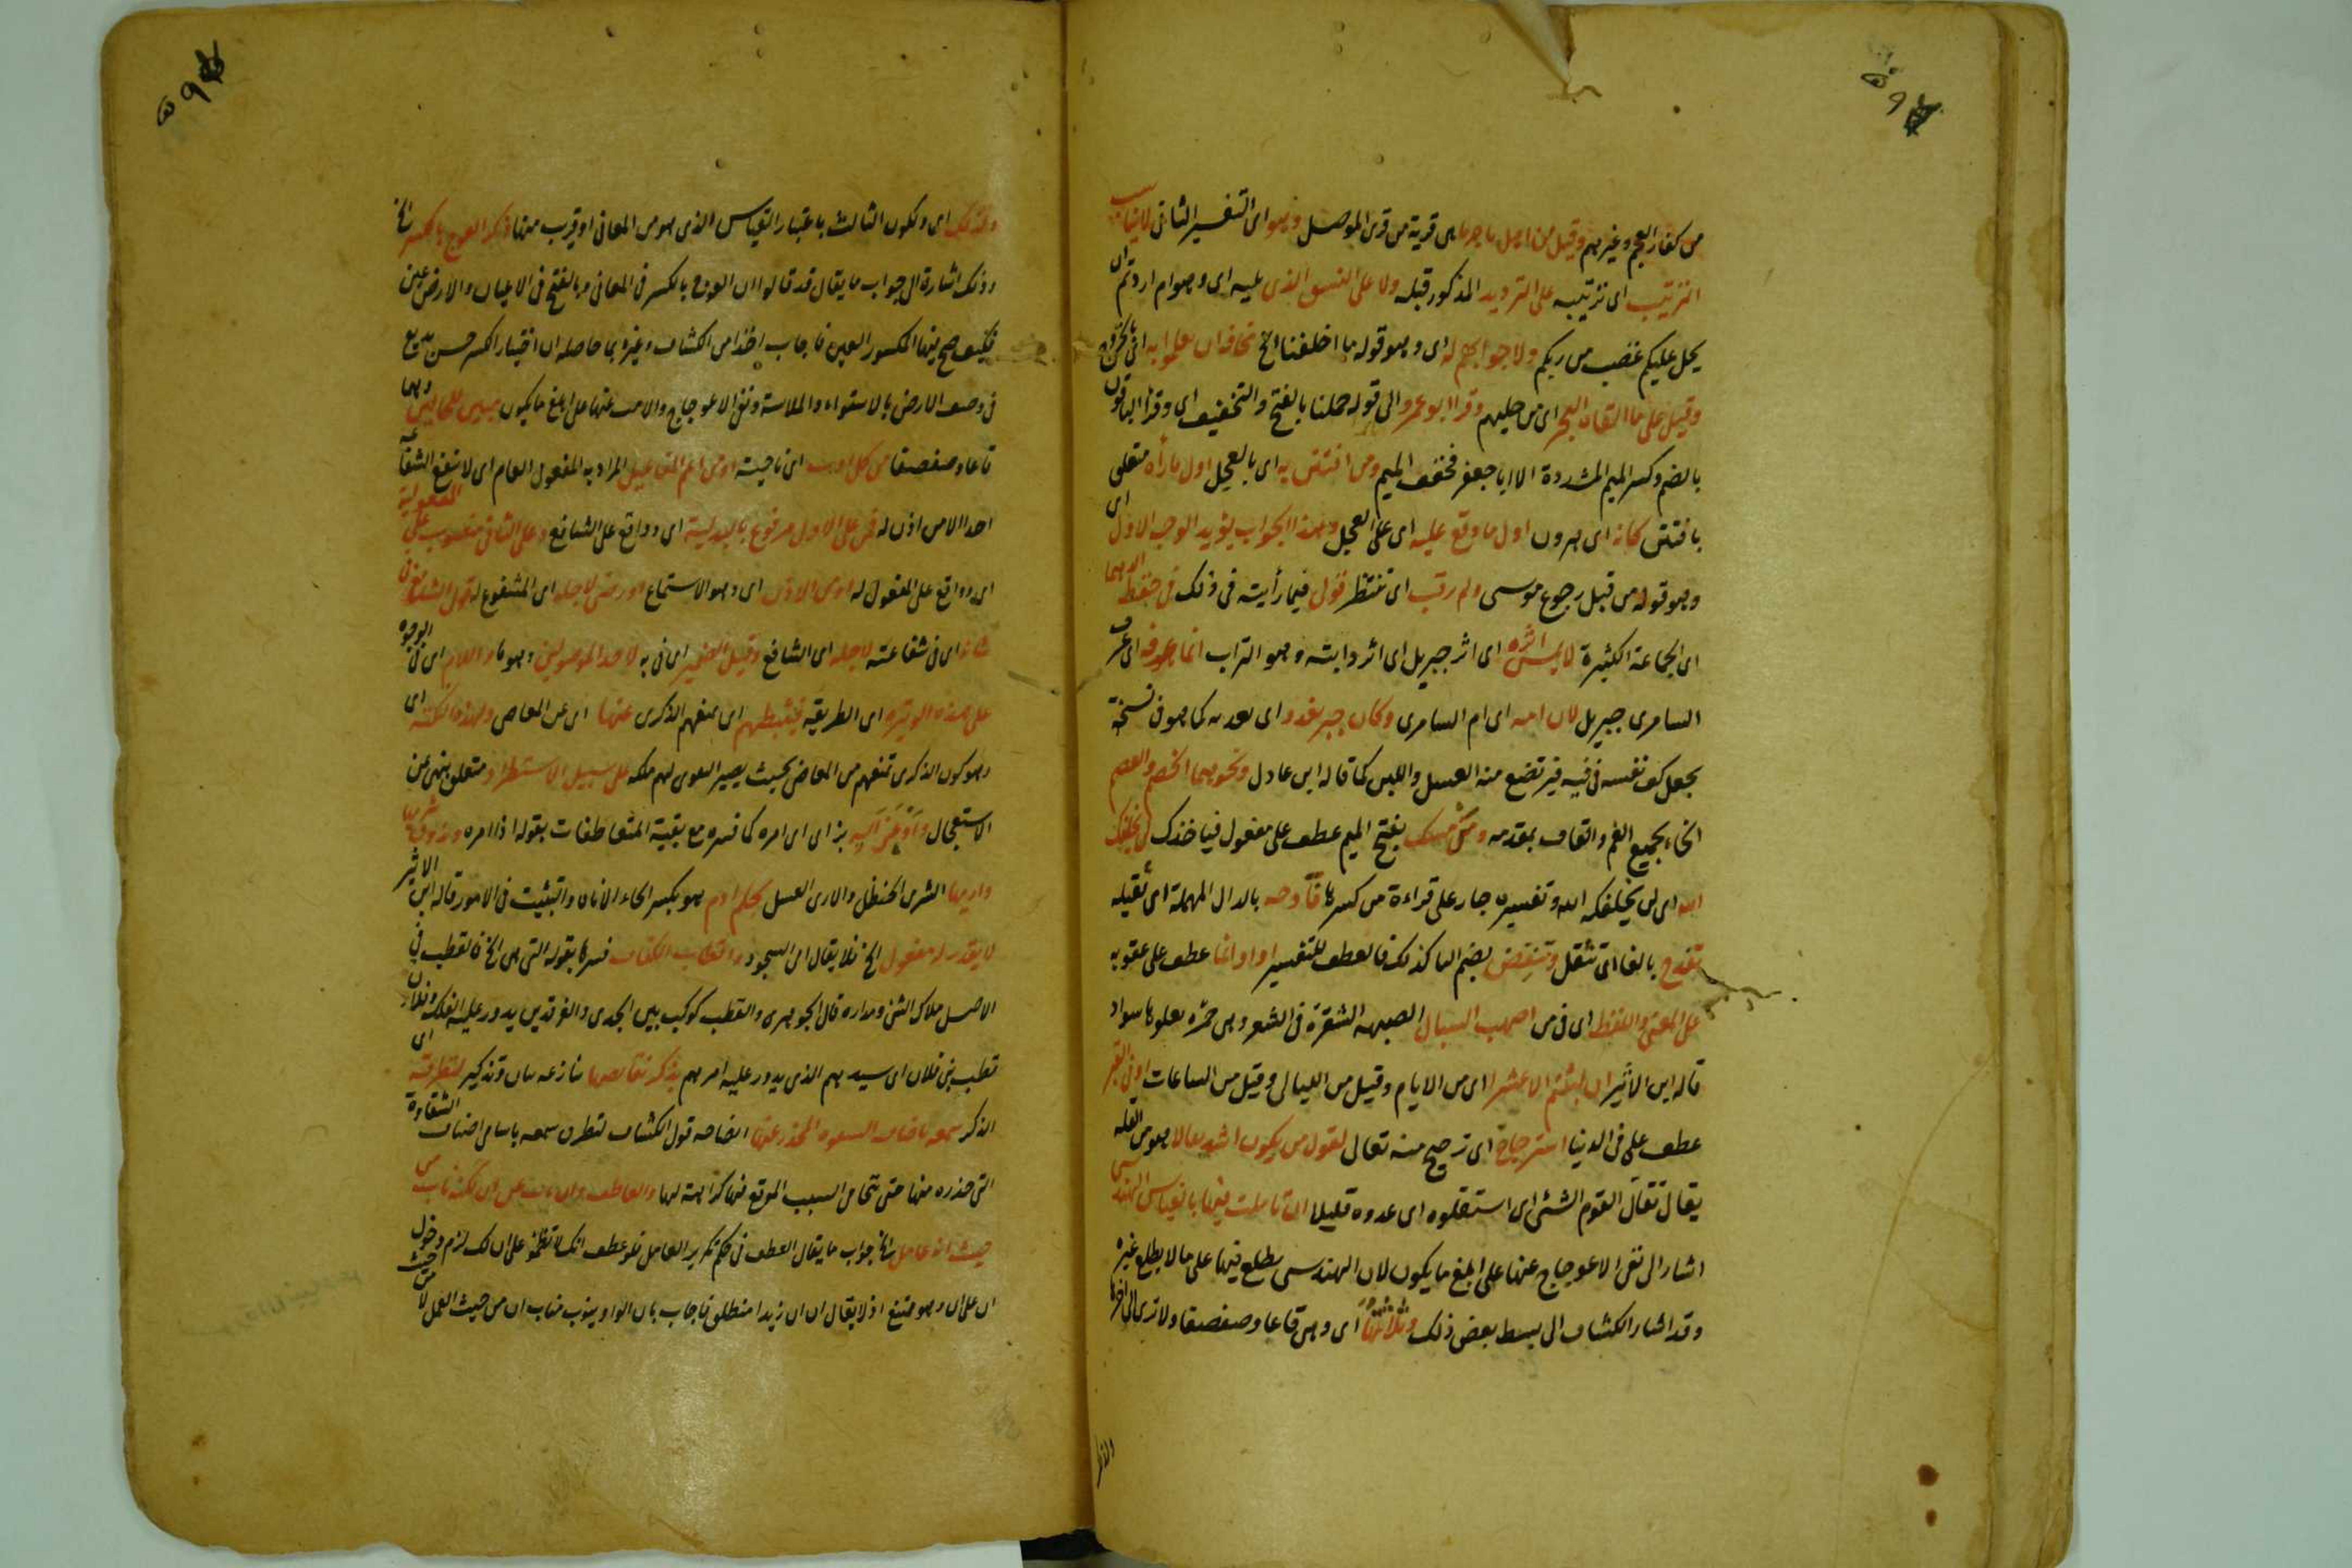 من كفار العجم وغيرهم وقيل من اهل باجرما هي قرية من قرى الموصل وهو اى التفسير الثانى لا يناسب
الترتيب اى ترتيبه على الترديد المذكور قبله ولا على النسق الذى عليه اى وهو ام اردتم ان
يحل عليكم غضب من ربكم ولا جوابهم له اى وهو قوله ما اخلفنا الخ
وقيل على ما القاه البحر اى من حليهم وقرا ابو عمرو الى قوله حملنا بالفتح والتخفيف اى وقرأ الباقون
بالضم وكسر الميم المشددة الا ابا جعفر فخفف الميم ومن افتتن به اى بالعجل اول ما رآه متعلق
بافتتن كانه اى هرون اول ما وقع عليه اى على العجل وهذا الجواب يؤيد الوجه الاول اى
وهو قوله من قبل رجوع موسى ولم ترقب اى تنتظر قولى فيما رأيته فى ذلك فى حفظ الدهما
اى الجماعة الكثيرة لا يمس اثره اى اثر جبريل اى اثر دابته وهو التراب انما عرفه اى عرف
السامرى جبريل لان امه اى ام السامرى وكان جبريل يغدوه اى بعد كما هو فى نسخة
يجعل كف نفسه فى فيه فيرتضع منه العسل واللبن كما قاله ابن عادل ونحوهما الخضم والقضم
الخاء بجميع الفم والقاف بمقدمه ومن مسك بفتح الميم عطف على مفعول فياخذك لن يخلفك
الله اى لن يخلفكه الله وتفسيره جار على قراءة من كسرها فادحه بالدال المهملة اى ثقيله
تفدح بالفا اى تثقل وتنقض بضم التا كذلك فالعطف للتفسير او اوانما عطف على عقوبه
على المعنى واللفظ اى فى من اصهب السبال الصهبه الشقرة فى الشعر وهى حمرة يعلوها سواد
قاله ابن الاثير ان لبثتم الا عشرا اى من الايام وقيل من الليالى وقيل من الساعات او فى القبر
عطف على فى الدنيا استرجاح اى ترجيح منه تعالى لقول من يكون اشد تقالا هو من القله
يقال تقال القوم الشئ اى استقلوه اى عدوه قليلا ان تاملت فيها بالقياس الهندسى
اشار الى نفى الاعوجاج عنها على ابلغ ما يكون لان الهندسى يطلع فيها على ما لا يطلع غيره
وقد اشار الكشاف الى بسط بعض ذلك وثلاثتها اى وهى قاعا وصفصفا ولا ترى الى اخرها
ولذلك اى ولكون الثالث باعتبار القياس الذى هو من المعانى او قريب منها ذكر العوج بالكسر الخ
وذلك اشارة الى جواب ما يقال قد قالوا ان العوج بالكسر فى المعانى وبالفتح فى الاعيان والارض عين
فكيف صح فيها المكسور العين فاجاب اخذا من الكشاف وغيره بما حاصله ان اختيار الكسر حسن بديع
فى وصف الارض بالاستواء والملاسة ونفى الاعوجاج والامت عنها على ابلغ ما يكون مبين للحالين وهما
قاعا وصفصفا من كل اوب اى ناحية او من اعم المفاعيل المراد به المفعول العام اى لا تنفع الشفاعة
احدا الا من اذن له فمن على الاول مرفوع بالبدلية اى وواقع على الشافع وعلى الثانى منصوب على المفعولية
اى وواقع على المفعول له او من الاول اى وهو الاستماع او رضى لاجله اى المشفوع له قول الشافع فى
شانه اى فى شفاعته لاجله اى الشافع وقيل الضمير اى فى به لاحد الموصولين وهو
على هذه الوتيره اى الطريقه فيثبطهم اى يمنعهم الذكرى عنها اى عن المعاصى ولهذه النكته اى
وهو كون الذكرى تمنعهم من المعاصى بحيث يصير التقوى لهم ملكه على سبيل الاستطراد متعلق بنهى عن
الاستعجال واوعز اليه بزاى اى امره كما فسره مع بقية المتعاطفات بقوله اذا امره وذوق شريها
واريها الشرى الحنظل والارى العسل بحلم ادم هو بكسر الحاء الاناه والتثبت فى الامور قاله ابن الاثير
لا يقدر له مفعول الخ فلا يقال ابى السجود واقطاب الكفاف فسرها بقوله التى هى الخ فالقطب فى
الاصل ملاك الشئ ومداره قال الجوهرى والقطب كوكب بين الجدى والفرقدين يدور عليه الفلك وفلان
قطب بنى فلان اى سيدهم الذى يدور عليه امرهم بذكر نقائضها تنازعه بيان وتذكير لتطرقه اى
الذكر سمعه باصناف الشقوه المحذر عنها ايضاحه قول الكشاف لتطرق سمعه باسامى اصناف الشقاوة
التى حذره منها حتى يتحامى السبب الموقع فيها كراهة لها والعاطف وان ناب عن ان لكنه ناب من
حيث انه عامل الخ جواب ما يقال العطف فى حكم تكرير العامل فلو عطف انك لا تظمؤ على ان لك لزم دخول
ان على ان وهو ممتنع اذ لا يقال ان ان زيدا منطلق فاجاب بان الواو ينوب مناب ان من حيث العمل لا من حيث